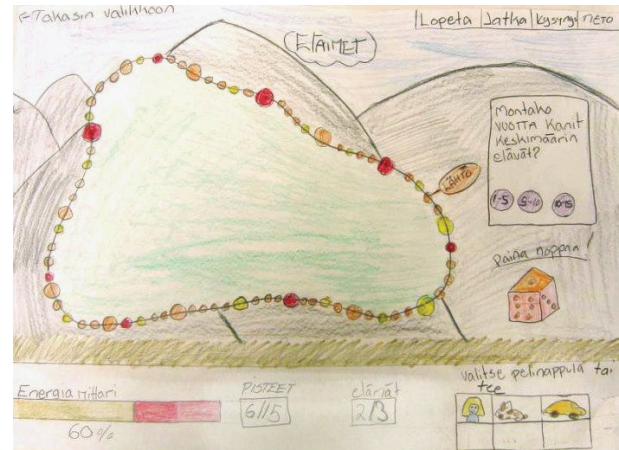 ←Takasin valikkoon
Lopeta Jatka kysymys TIETO
ELÄIMET
Montako
VUOTTA Kanit
Keskimäärin
elävät?
1-5 5-10 10-15
LÄHTÖ
Paina noppaa!
Energia mittari
60%
PISTEET
6/15
elämät
2/3
valitse pelinappula tai
tee